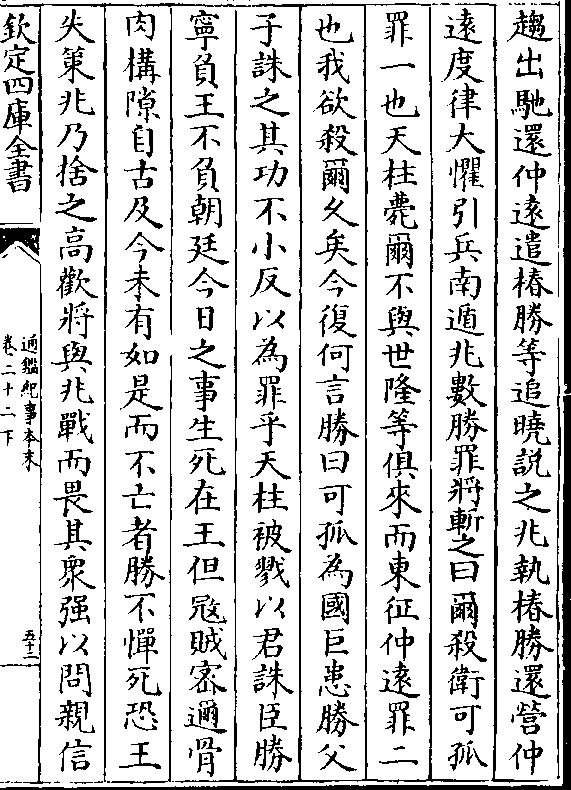 趨出馳還仲遠遣椿勝等追曉説之兆執椿勝還營仲
遠度律大懼引兵南遁兆數勝罪將斬之曰爾殺衛可孤
罪一也天柱薨爾不與世隆等俱來而東征仲遠罪二
也我欲殺爾乆矣今復何言勝曰可孤為國巨患勝父
子誅之其功不小反以為罪乎天柱被戮以君誅臣勝
寧負王不負朝廷今日之事生死在王但㓂賊宻邇骨
肉構隙自古及今未有如是而不亡者勝不憚死恐王
失策兆乃捨之高歡將與兆戰而畏其衆强以問親信
欽定四庫全書
通鑑紀事本末
卷二十二下
五十三